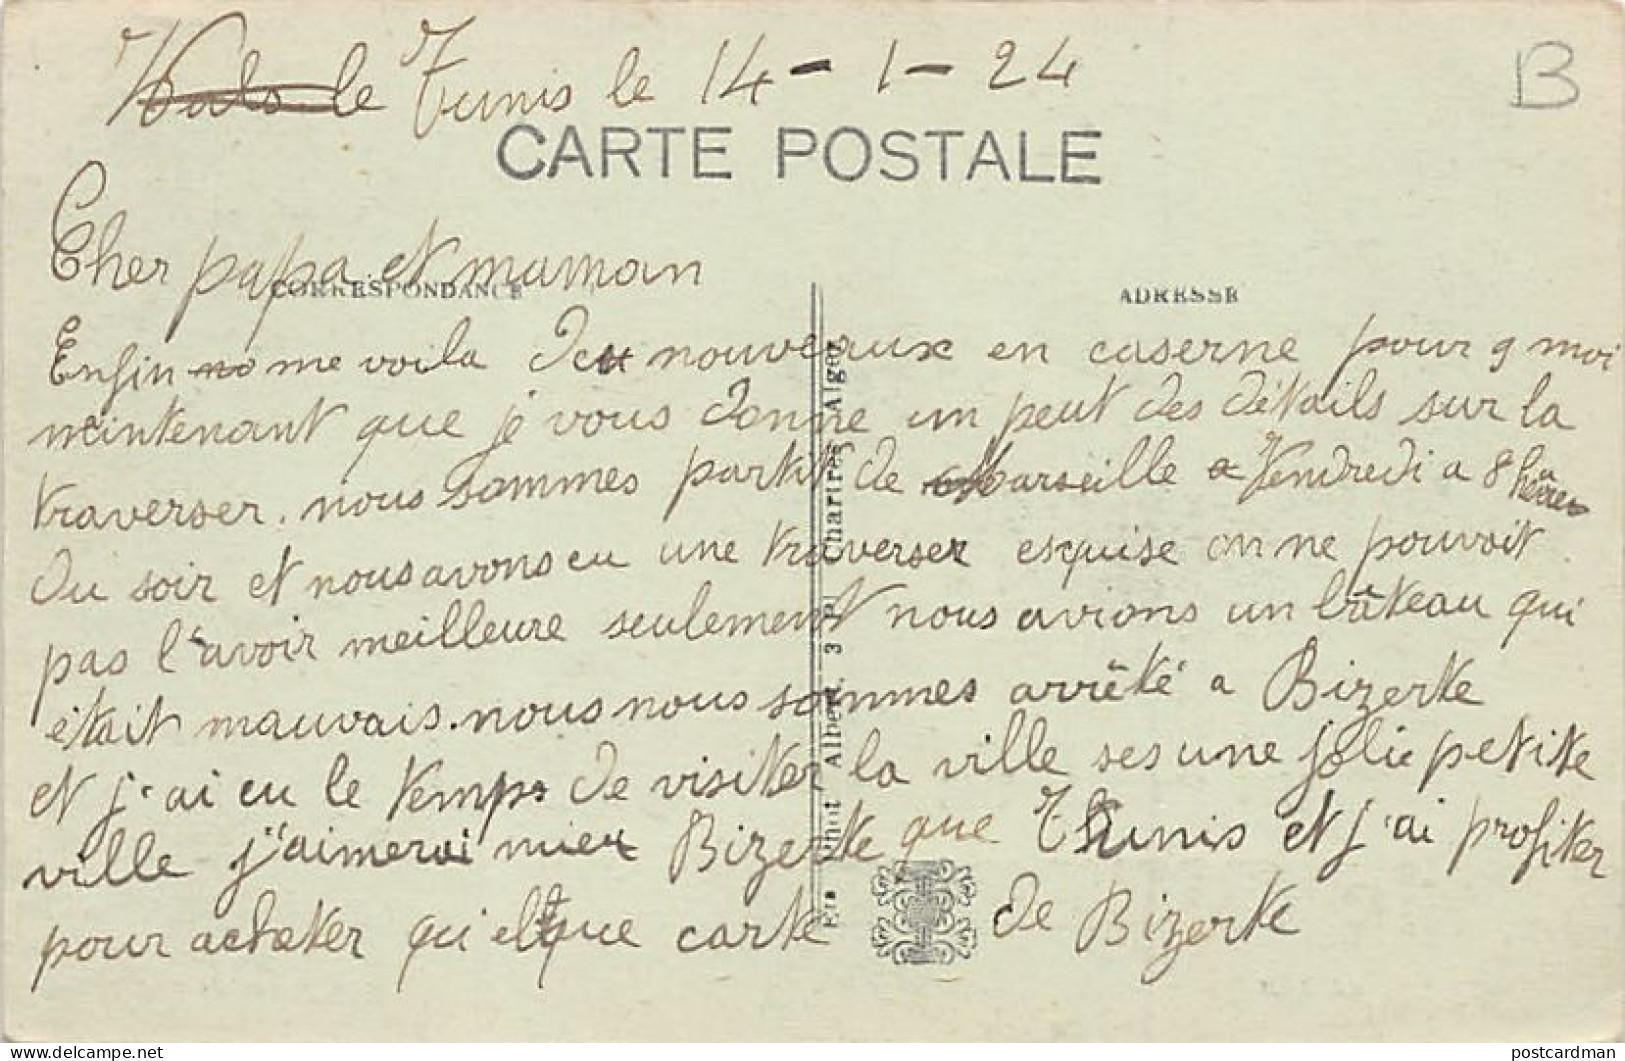 le Tunis le 14-1-24
B
CARTE POSTALE
Cher papa et maman
CORRESPONDANCE
ADRESSE
Enfin me voila de nouveaux en caserne pour 9 moi
meintenant que je vous donne un peut des détails sur la
traverser. nous sommes partit de Marseille a Vendredi a 8 heures
du soir et nous avons eu une traverser esquise on ne pouvoit
pas l'avoir meilleure seulement nous avions un bâteau qui
était mauvais. nous nous sommes arrêté a Bizerte
et j'ai eu le temps de visiter la ville ses une jolie petite
ville j'aimerai mieu Bizerte que Thunis et j'ai profiter
pour acheter quielque carte de Bizerte
Phot Albert, 3 Pl Chartres Alger
postcardman